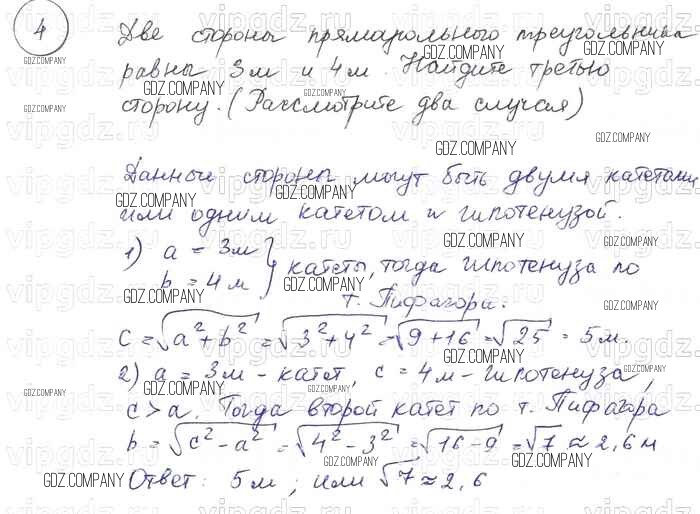 4
Две стороны прямоугольного треугольника
равны 3м и 4м. Найдите третью
сторону. (Рассмотрите два случая)
Данные стороны могут быть двумя катетами
или одним катетом и гипотенузой.
1) a = 3м
b = 4м } катеты, тогда гипотенуза по
т. Пифагора:
c = √a² + b² = √3² + 4² = √9 + 16 = √25 = 5м.
2) a = 3м - катет, c = 4м - гипотенуза,
c > a. Тогда второй катет по т. Пифагора
b = √c² - a² = √4² - 3² = √16 - 9 = √7 ≈ 2,6м
Ответ: 5м; или √7 ≈ 2,6
GDZ.COMPANY
vipgdz.ru